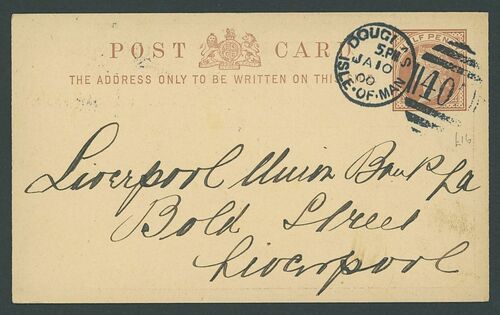 POST CARD
THE ADDRESS ONLY TO BE WRITTEN ON THIS
HALF PENNY
DOUGLAS
5.PM
JA 10
00
ISLE·OF·MAN
140
L16
Liverpool Union Bank La
Bold Street
Liverpool